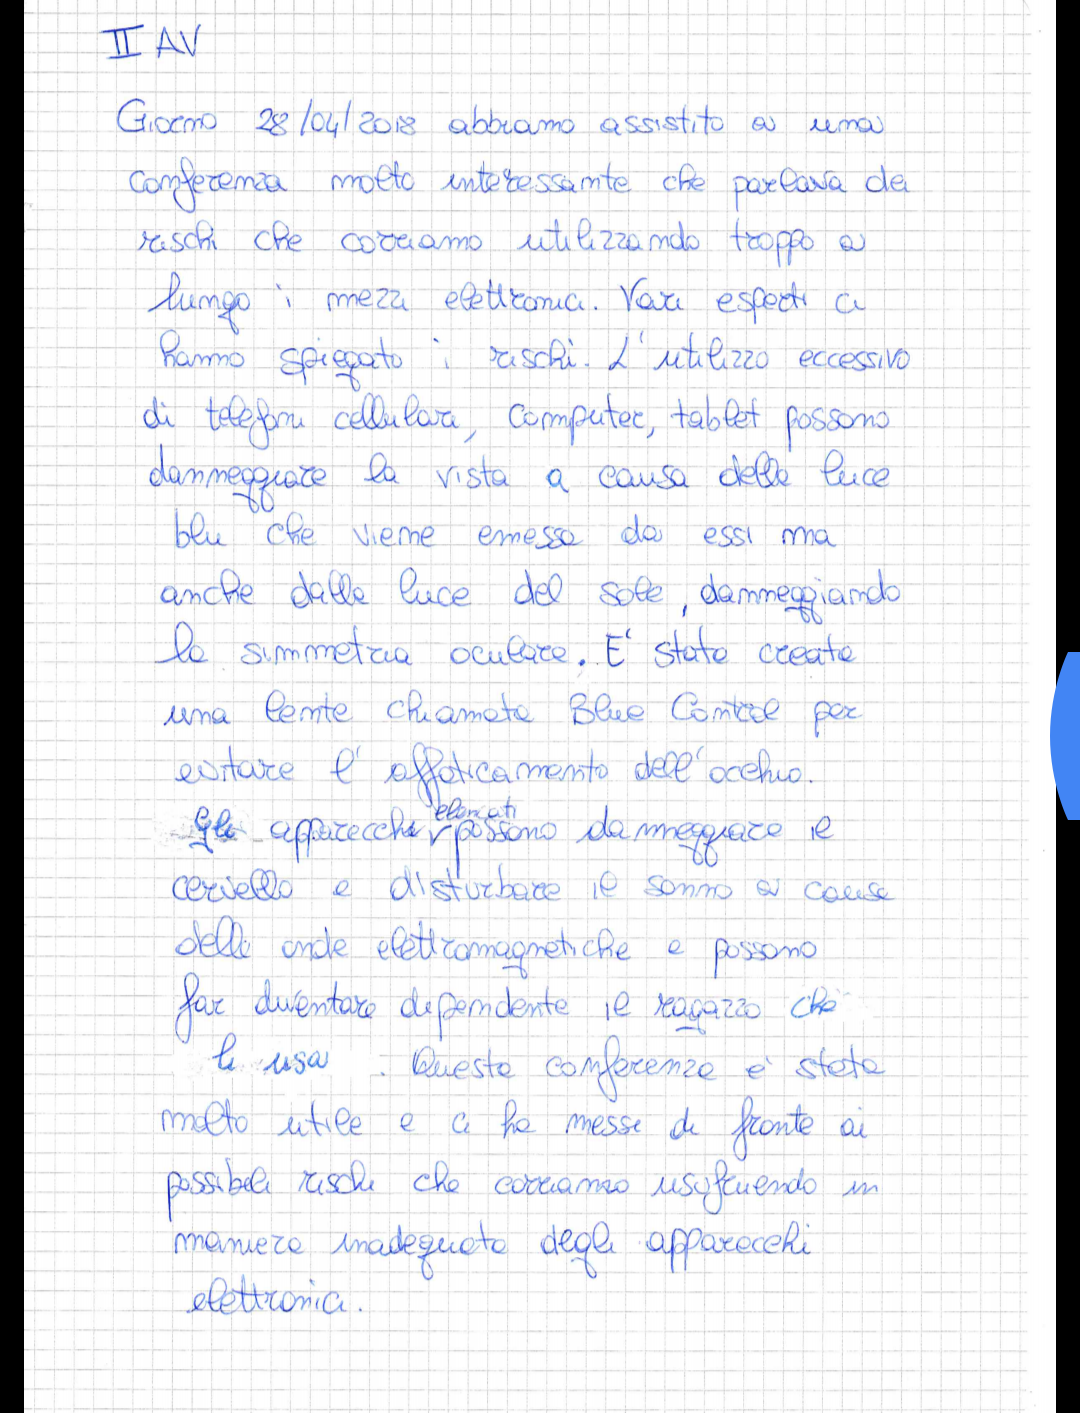 II AV
Giorno 28/04/2018 abbiamo assistito a una
conferenza molto interessante che parlava dei
rischi che corriamo utilizzando troppo a
lungo i mezzi elettronici. Vari esperti ci
hanno spiegato i rischi. L'utilizzo eccessivo
di telefoni cellulari, computer, tablet possono
danneggiare la vista a causa della luce
blu che viene emessa da essi ma
anche dalla luce del sole, danneggiando
la simmetria oculare. E' stata creata
una lente chiamata Blue Control per
evitare l'affaticamento dell'occhio.
Gli apparecchi elencati possono danneggiare il
cervello e disturbare il sonno a causa
delle onde elettromagnetiche e possono
far diventare dipendente il ragazzo che
li usa. Questa conferenza è stata
molto utile e ci ha messi di fronte ai
possibili rischi che corriamo usufruendo in
maniera inadeguata degli apparecchi
elettronici.